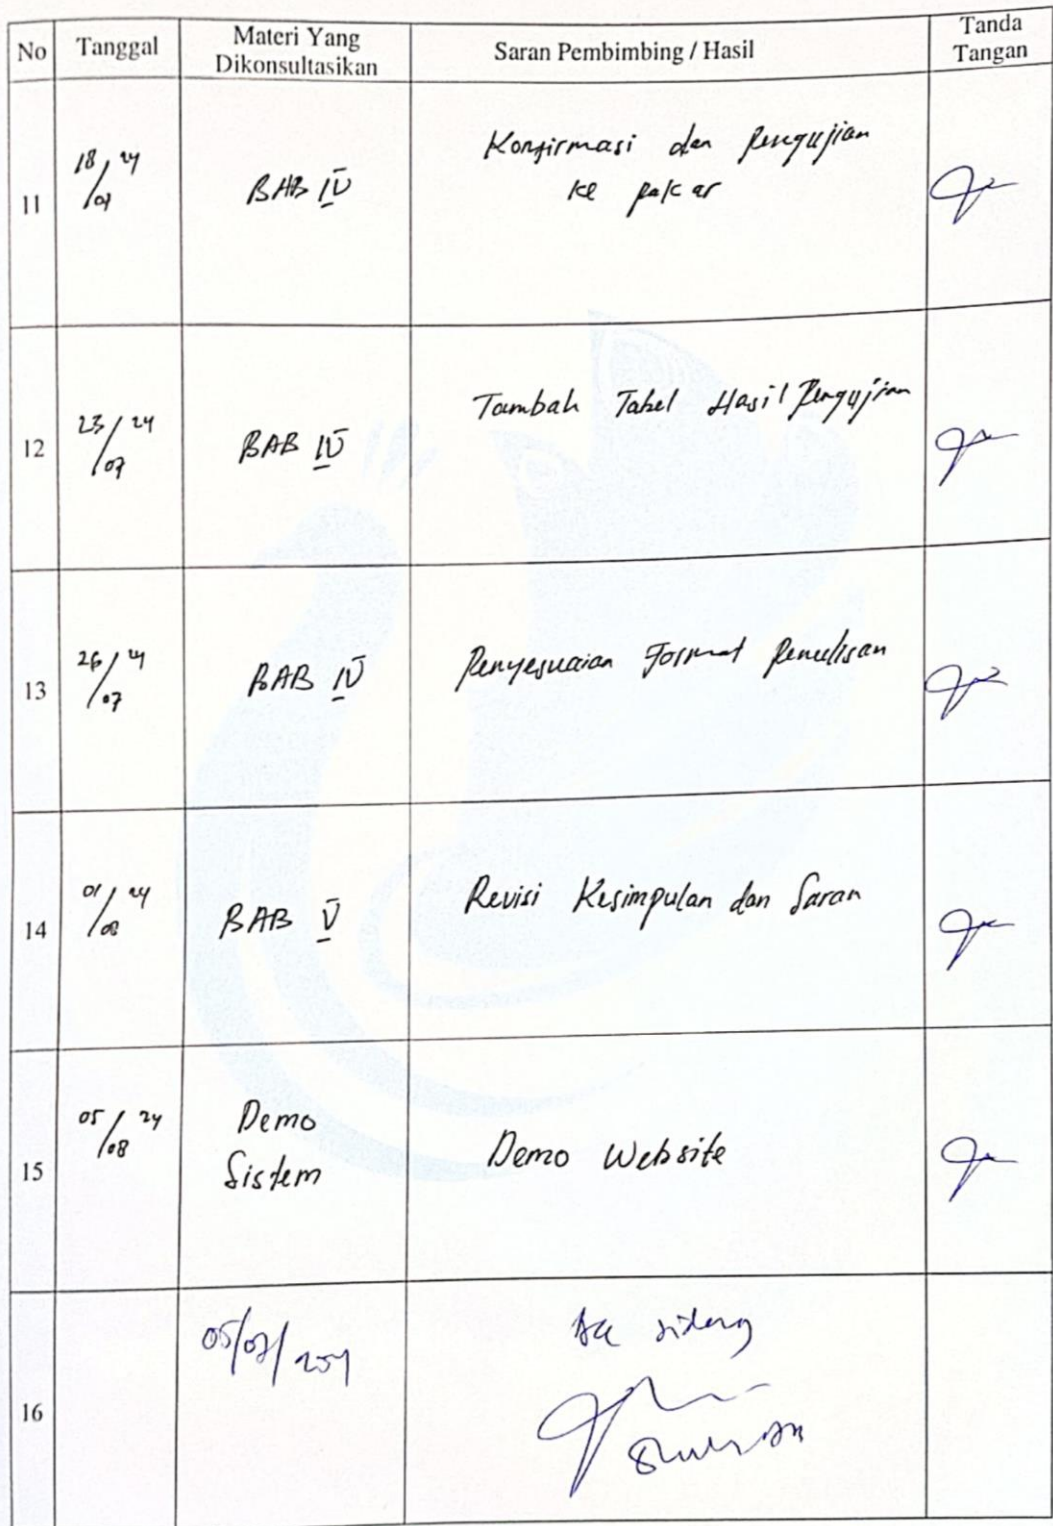 No Tanggal Materi Yang Dikonsultasikan Saran Pembimbing / Hasil Tanda Tangan
11 18/07 24 BAB IV Konfirmasi dan Pengujian
ke pakar
12 23/07 24 BAB IV Tambah Tabel Hasil Pengujian
13 26/07 24 BAB IV Penyesuaian Format Penulisan
14 01/08 24 BAB V Revisi Kesimpulan dan Saran
15 05/08 24 Demo
Sistem Demo Website
16 Acc sidang